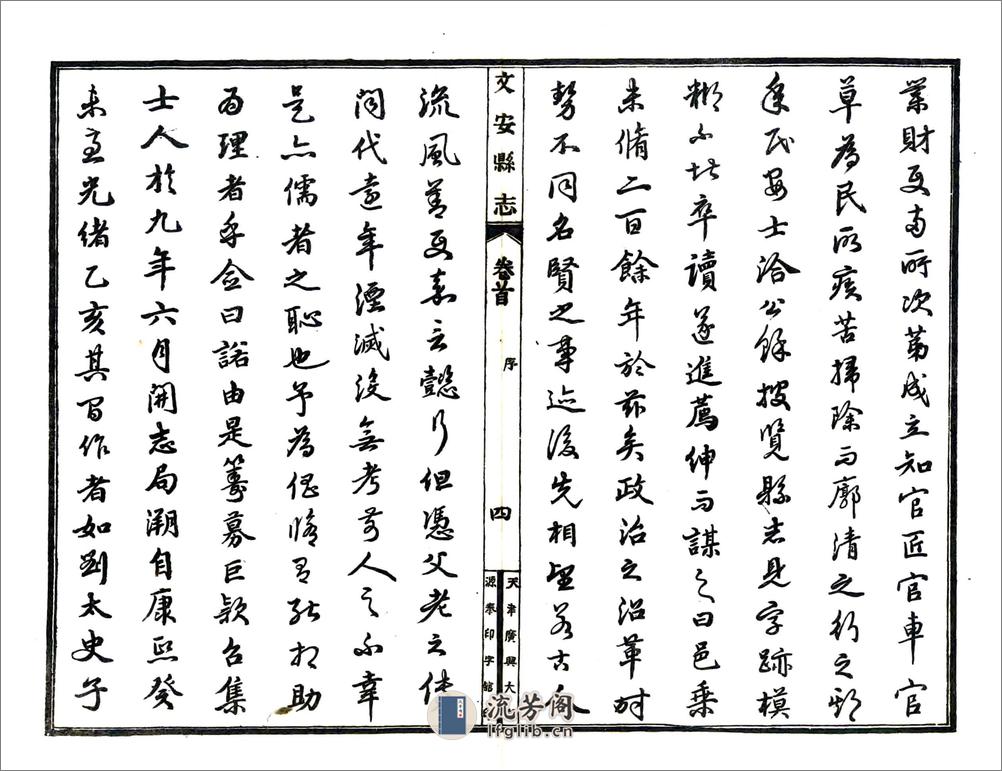 業財所次第成立知官匠官車官
草為民所疾苦掃除而廓清之行之期
年民安士洽公餘披覽縣志見字跡模
糊不堪卒讀遂進薦紳而謀之曰邑乘
未脩二百餘年於茲矣政治之沿革時
勢不同名賢之事迹後先相望若古人
文安縣志
卷首
序
四
天津廣興大
源泰印字館
流風善政嘉言懿行但憑父老之傳
聞代遠年湮滅沒無考前人之不幸
是亦儒者之恥也予為倡脩君能相助
而理者乎僉曰諾由是籌募巨款召集
士人於九年六月開志局溯自康熙癸
未至光緒乙亥其間作者如劉太史子
流芳阁
lfglib.cn